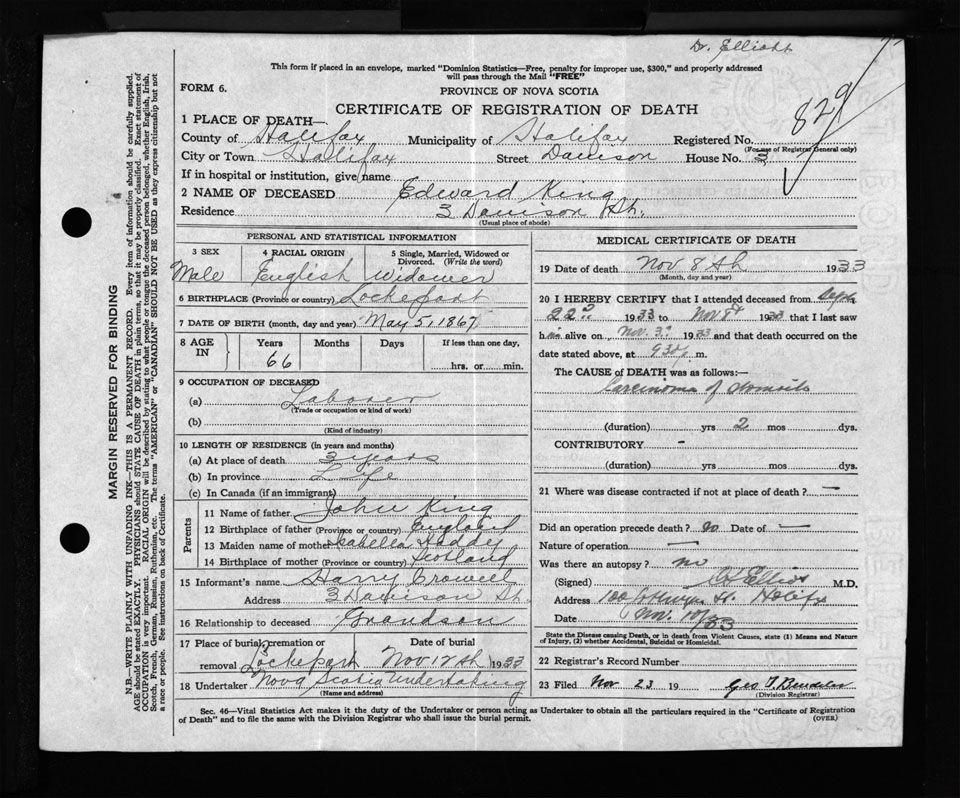 Dr. Elliott
This form if placed in an envelope, marked "Dominion Statistics—Free, penalty for improper use, $300," and properly addressed
will pass through the Mail "FREE"
FORM 6.
PROVINCE OF NOVA SCOTIA
CERTIFICATE OF REGISTRATION OF DEATH
829
1 PLACE OF DEATH—
County of Halifax Municipality of Halifax Registered No.
(For use of Registrar General only)
City or Town Halifax Street Davison House No. 3
If in hospital or institution, give name
2 NAME OF DECEASED Edward King
Residence 3 Davison St.
(Usual place of abode)
PERSONAL AND STATISTICAL INFORMATION
3 SEX 4 RACIAL ORIGIN 5 Single, Married, Widowed or Divorced. (Write the word)
Male English Widower
6 BIRTHPLACE (Province or country) Lockeport
7 DATE OF BIRTH (month, day and year) May 5, 1867
8 AGE IN Years Months Days If less than one day,
66 hrs. or min.
9 OCCUPATION OF DECEASED
(a) Laborer
(Trade or occupation or kind of work)
(b)
(Kind of industry)
10 LENGTH OF RESIDENCE (in years and months)
(a) At place of death 3 years
(b) In province Life
(c) In Canada (if an immigrant)
Parents
11 Name of father John King
12 Birthplace of father (Province or country) England
13 Maiden name of mother Isabella
14 Birthplace of mother (Province or country) Scotland
15 Informant's name Harry Crowell
Address 3 Davison St.
16 Relationship to deceased Grandson
17 Place of burial, or removal Lockeport Date of burial Nov 12th 1933
18 Undertaker Nova Scotia Undertaking
(Name and address)
MEDICAL CERTIFICATE OF DEATH
19 Date of death Nov 8th 1933
(Month, day and year)
20 I HEREBY CERTIFY that I attended deceased from Sept
22nd 1933 to Nov 8th 1933 that I last saw
him alive on Nov. 3rd 1933 and that death occurred on the
date stated above, at m.
The CAUSE of DEATH was as follows:—
Carcinoma of
(duration) yrs 2 mos dys.
CONTRIBUTORY —
(duration) yrs mos dys.
21 Where was disease contracted if not at place of death? —
Did an operation precede death? no Date of —
Nature of operation —
Was there an autopsy? no
(Signed) Elliott M.D.
Address St. Halifax
Date Nov. 10/33
State the Disease causing Death, or in death from Violent Causes, state (1) Means and Nature
of Injury, (2) whether Accidental, Suicidal or Homicidal.
22 Registrar's Record Number
23 Filed Nov 23 19 Geo
(Division Registrar)
Sec. 46—Vital Statistics Act makes it the duty of the Undertaker or person acting as Undertaker to obtain all the particulars required in the "Certificate of Registration
of Death" and to file the same with the Division Registrar who shall issue the burial permit.
(OVER)
MARGIN RESERVED FOR BINDING
N.B.—WRITE PLAINLY WITH UNFADING INK—THIS IS A PERMANENT RECORD. Every item of information should be carefully supplied.
AGE should be stated EXACTLY. PHYSICIANS should STATE CAUSE OF DEATH in plain terms, so that it may be properly classified. Exact statement of
OCCUPATION is very important. RACIAL ORIGIN will be described by stating to what people or tongue the deceased person belonged, whether English, Irish,
Scotch, French, German, Russian, Ruthenian, etc. The terms "AMERICAN" or "CANADIAN" SHOULD NOT BE USED as they express citizenship but not
a race or people. See instructions on back of Certificate.